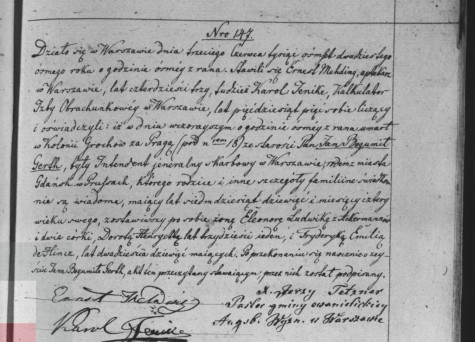 Nro 147.
Działo się w Warszawie dnia trzeciego Czerwca tysiąc ośmset dwudziestego
osmego roku o godzinie ósmej z rana. Stawili się Ernest Mehding, aptekarz
w Warszawie, lat czterdzieści trzy, tudzież Karol Jenike, Kalkulator
Izby Obrachunkowéj w Warszawie, lat pięćdziesiąt pięć sobie liczący
i oświadczyli: iż w dniu wczorayszym o godzinie osmey z rana umarł
w Kolonii Grochów za Pragą /pod n 18/ ze starości Pan Jan Bogumił
Gerth, były Intendent jeneralny skarbowy w Warszawie, rodem z miasta
Gdańsk w Prussach, którego rodzice i inne szczegóły familiine świadkom
nie są wiadome, mający lat siedmdziesiąt dziewięć i miesięcy cztery
wieku swego, zostawiwszy po sobie żonę Eleonorę Ludwikę z Ackermannów
i dwie córki, Dorotę Henryettę lat trzydzieści jeden, i Fryderykę Emilią
de Hince, lat dwadzieścia dziewięć maiących. Po przekonaniu się naocznie o zey-
ściu Jana Bogumiła Gerth, akt ten przeczytany stawaiącym, przez nich został podpisany.
Ernst Mehding
Karol Jenike
X. Jerzy Tetzner
Pastor gminy ewanielickiey
Augsb. Wyzn. w Warszawie